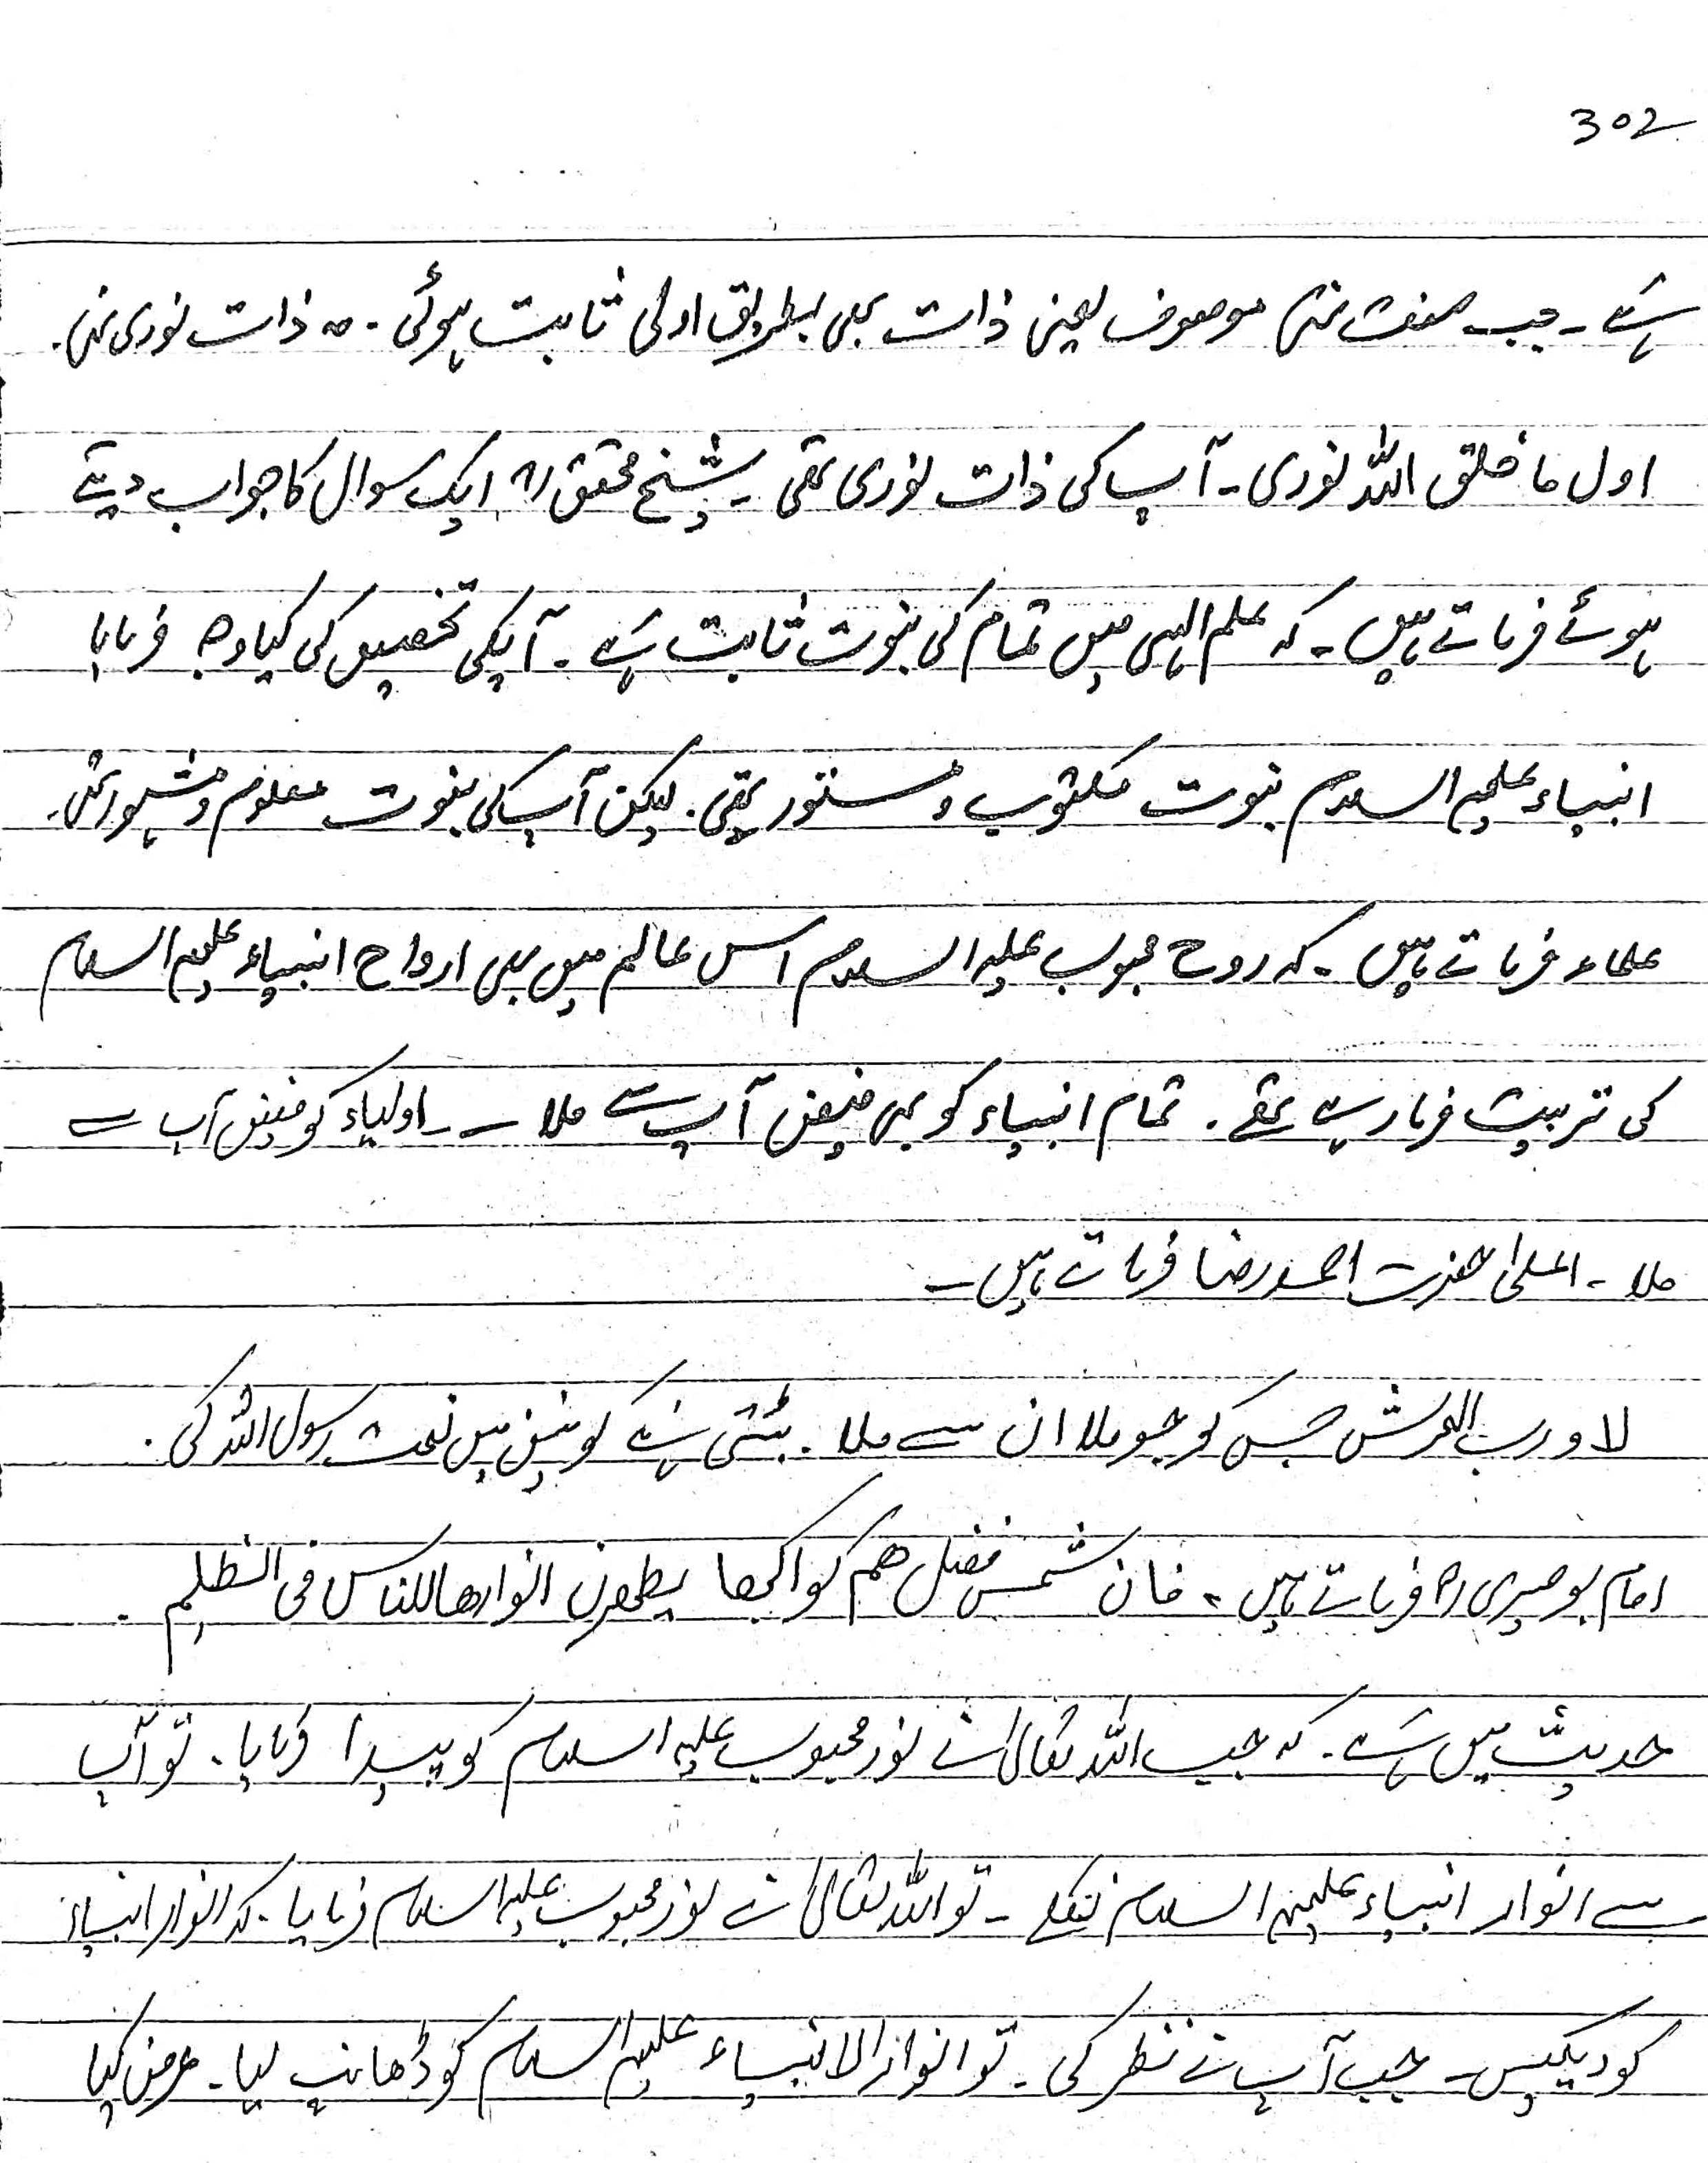 302
ہے۔ جب صفت تھی موصوف یعنی ذات بھی بطریق اولی ثابت ہوئی۔ وہ ذات نوری تھی۔
اول ما خلق اللہ نوری۔ آپ کی ذات نوری تھی۔ شیخ محقق رح ایک سوال کا جواب دیتے
ہوئے فرماتے ہیں۔ کہ علم الہی میں تمام کی نبوت ثابت ہے۔ آپکی تخصیص کی کیا وجہ فرمایا
انبیاء علیہم السلام نبوت مکتوب و مستور تھی۔ لیکن آپ کی نبوت معلوم و مشہور تھی۔
علماء فرماتے ہیں۔ کہ روح محبوب علیہ السلام اس عالم میں بھی ارواح انبیاء علیہم السلام
کی تربیت فرما رہے تھے۔ تمام انبیاء کو بھی فیض آپ سے ملا۔ اولیاء کو فیض آپ سے
ملا۔ اعلیٰ حضرت احمد رضا فرماتے ہیں۔
لا ورب العرش جس کو جو ملا ان سے ملا۔ بٹتی ہے کونین میں نعمت رسول اللہ کی۔
امام بوصیری رح فرماتے ہیں۔ فان شمس فضل ھم کواکبھا یظھرن انوارھا للناس فی الظلم۔
حدیث میں ہے۔ کہ جب اللہ تعالیٰ نے نور محبوب علیہ السلام کو پیدا فرمایا۔ تو آپ
سے انوار انبیاء علیہم السلام نکلے۔ تو اللہ تعالیٰ نے نور محبوب علیہ السلام فرمایا۔ کہ انوار انبیاء
کو دیکیں۔ جب آپ نے نظر کی۔ تو انوار الانبیاء علیہم السلام کو ڈھانپ لیا۔ عرض کیا